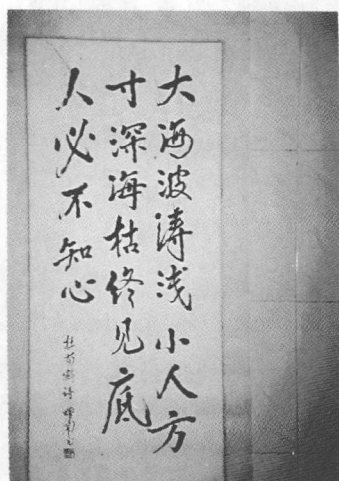 大海波涛浅小人方
寸深海枯终见底
人必不知心
杜荀鹤诗